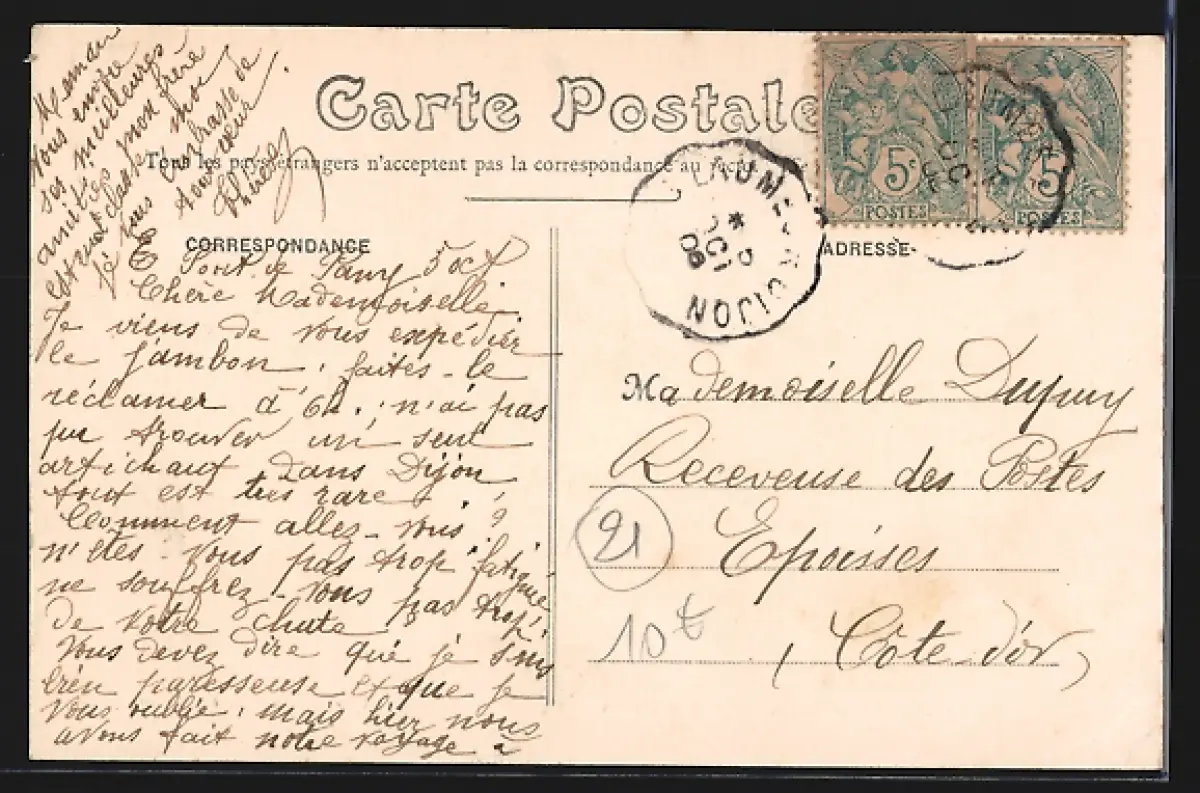 Carte Postale
Tous les pays étrangers n'acceptent pas la correspondance au recto
CORRESPONDANCE
ADRESSE
Pont de Pany 5 oct
Chère Mademoiselle,
Je viens de vous expédier
le jambon, faites-le
réclamer à 6h. n'ai pas
pu trouver un seul
artichaut dans Dijon
tout est très rare.
Comment allez-vous?
n'êtes-vous pas trop fatiguée
ne souffrez-vous pas trop
de votre chute
Vous devez dire que je suis
bien paresseuse et que je
vous oublie, mais hier nous
avons fait notre voyage à
Maman
vous envoie
ses meilleures
amitiés mon frère
est en classe
Je vous embrasse de
tout cœur
Mademoiselle Dupuy
Receveuse des Postes
Epoisses
(Côte-d'or)
21
10t
5c
POSTES
5
POSTES
DIJON
OCT
08